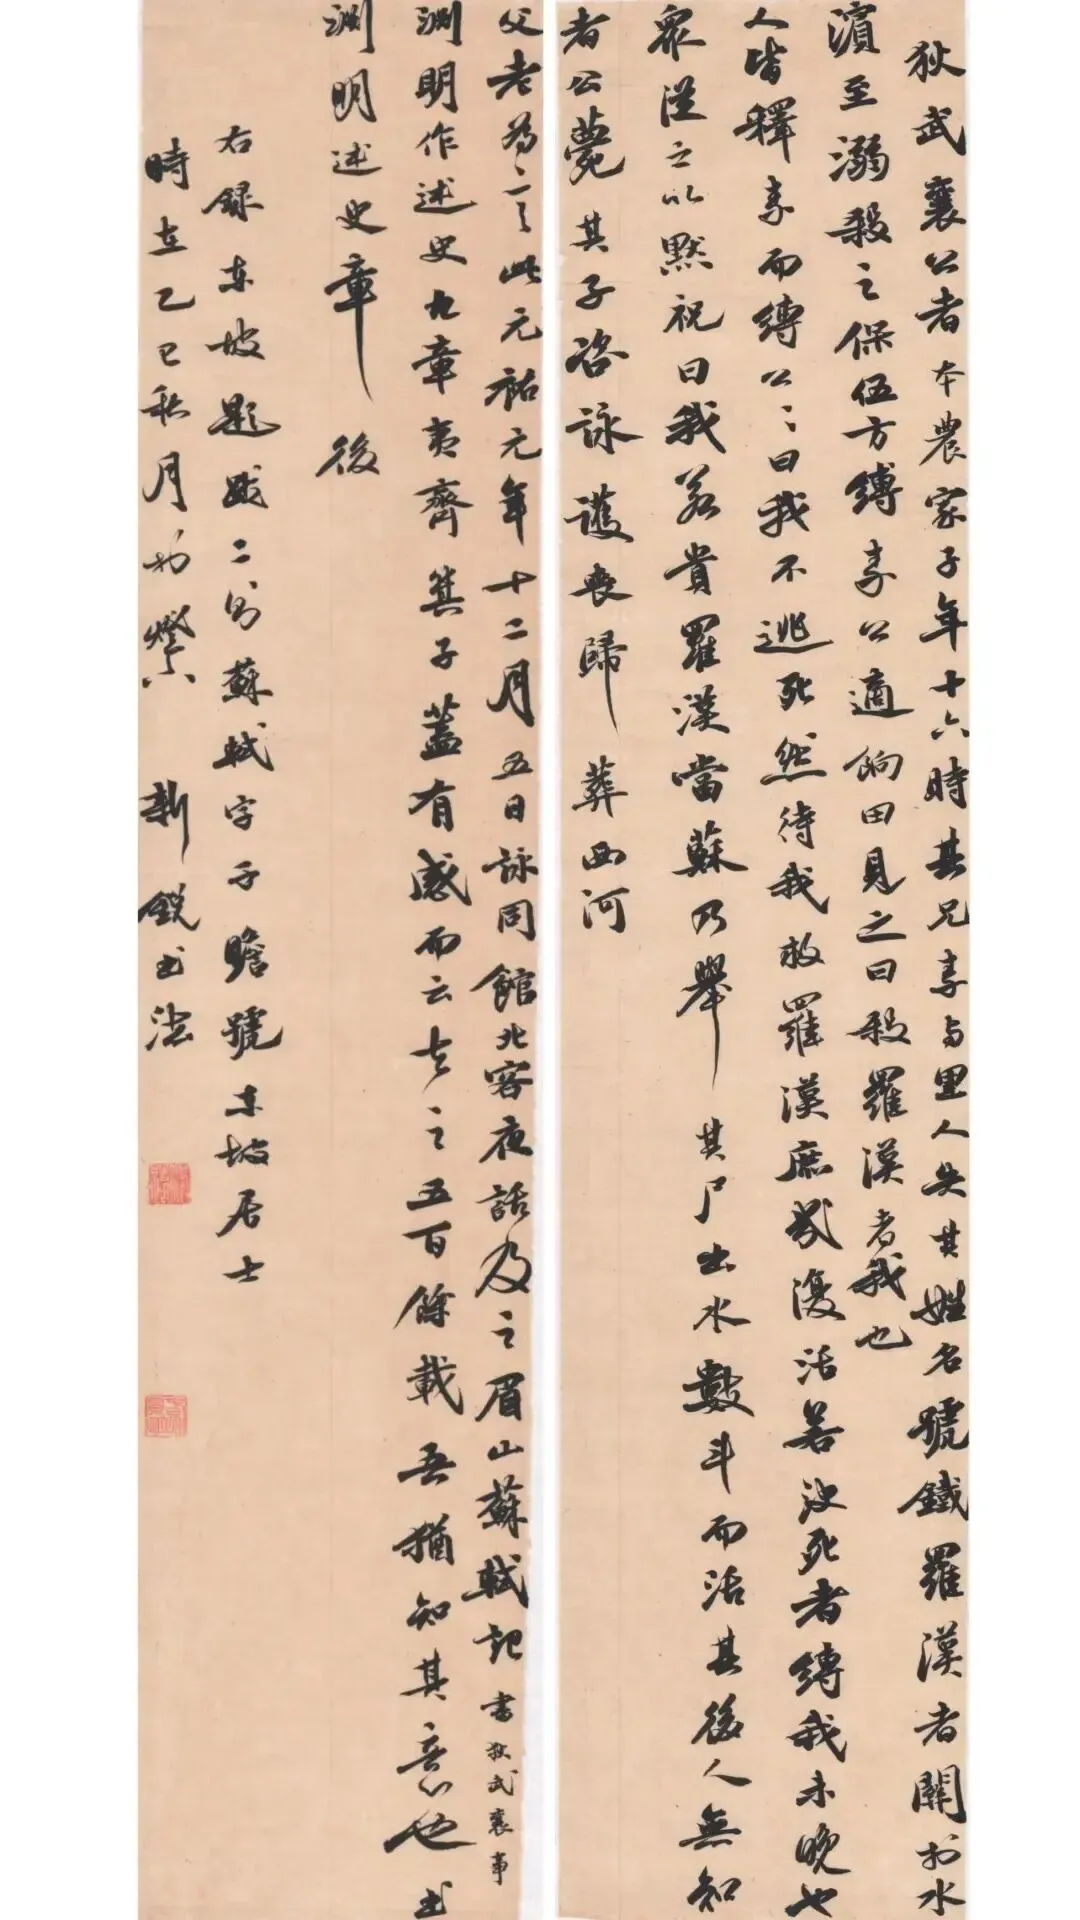 狄武襄公者本農家子年十六時其兄素与里人失其姓名號鐵羅漢者鬭於水
濱至溺殺之保伍方縛素公適餉田見之曰殺羅漢者我也
人皆釋素而縛公公曰我不逃死然待我救羅漢庶幾復活若決死者縛我未晚也
眾從之公默祝曰我若貴羅漢當蘇乃舉其尸出水數斗而活其後人無知
者公薨其子咨詠護喪歸葬西河
父老為言此元祐元年十二月五日詠同館北客夜話及之眉山蘇軾記 書狄武襄事
淵明作述史九章夷齊箕子蓋有感而云去之五百餘載吾猶知其意也 書
淵明述史章後
右錄東坡題跋二則蘇軾字子瞻號東坡居士
時在乙巳秋月於 新銳書法